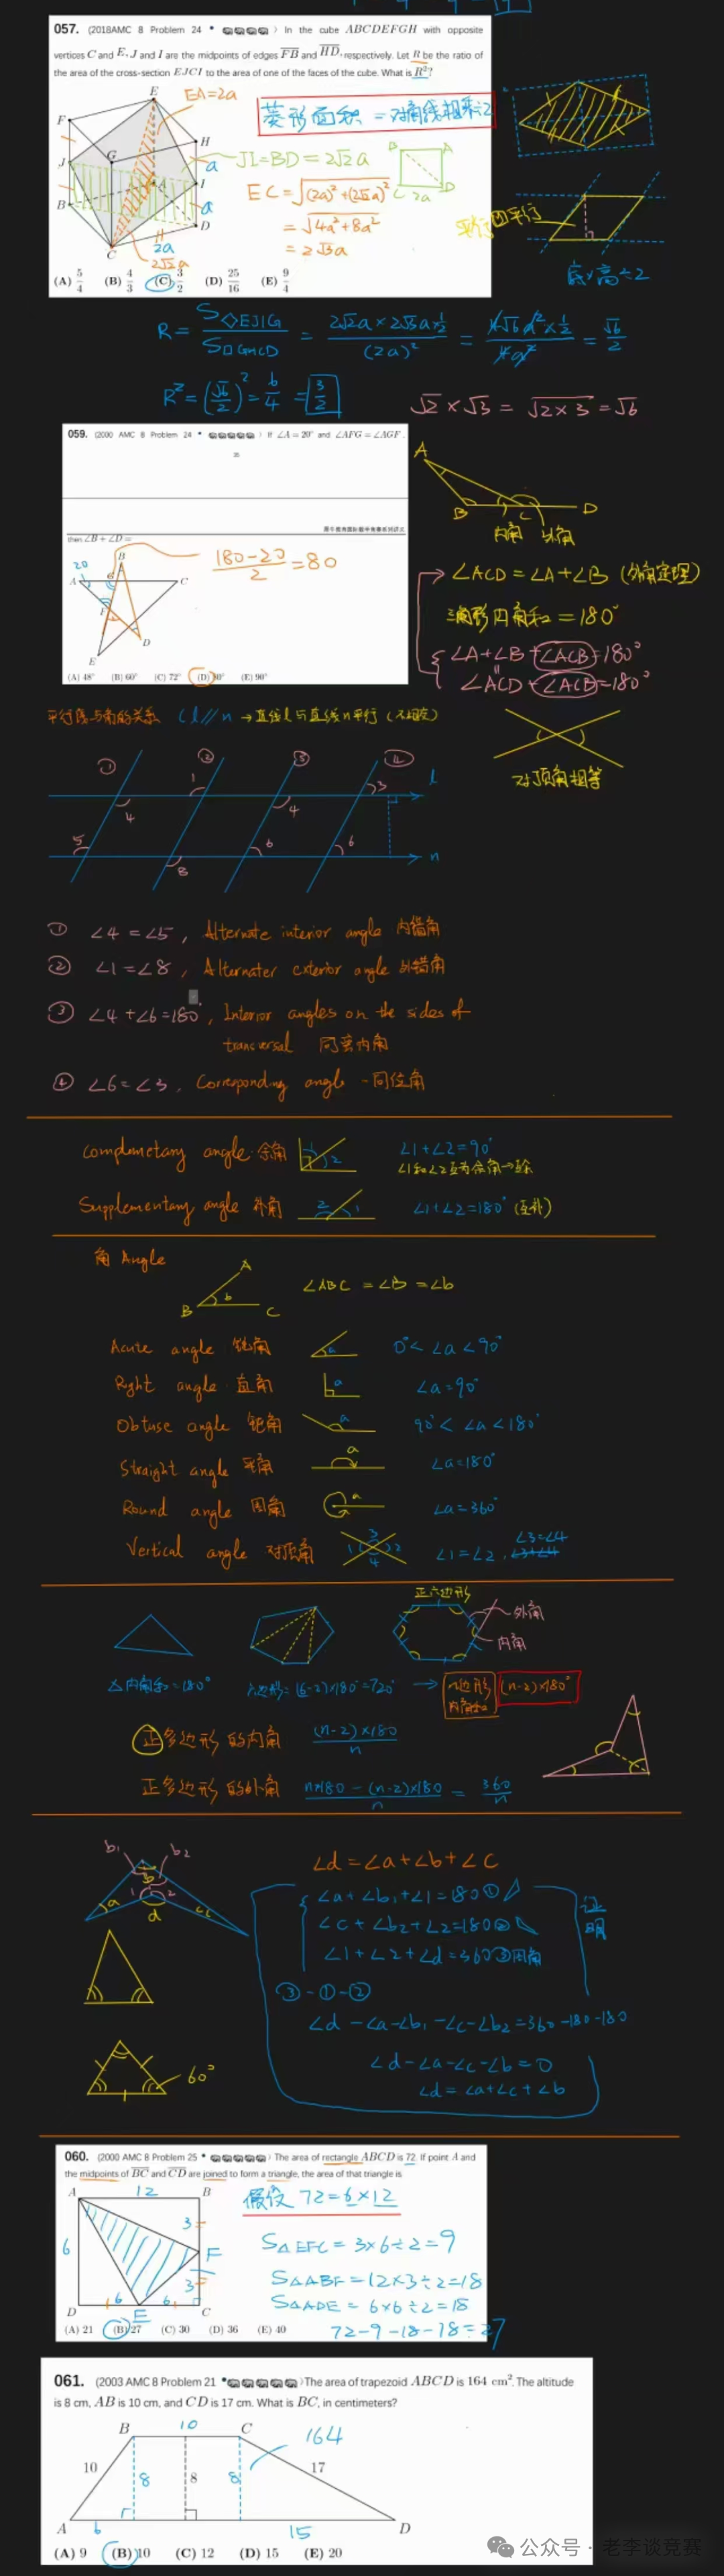 057. (2018AMC 8 Problem 24 • ) In the cube ABCDEFGH with opposite
vertices C and E, J and I are the midpoints of edges FB and HD, respectively. Let R be the ratio of
the area of the cross-section EJCI to the area of one of the faces of the cube. What is R²?
E EA=2a
菱形面积 = 对角线相乘÷2
F
H
G
J
a
JI=BD=2√2a
B A
C 2a D
A
I
EC=√(2a)²+(2√2a)²
a
=√4a²+8a²
=2√3a
B
D
C
2a
2√2a
平行四平行
底×高÷2
(A) 5/4 (B) 4/3 (C) 3/2 (D) 25/16 (E) 9/4
R = S◇EJIG / S□GHCD = 2√2a×2√3a×1/2 / (2a)² = 4√6a²×1/2 / 4a² = √6/2
R²=(√6/2)²=6/4=3/2
√2×√3=√2×3=√6
059. (2000 AMC 8 Problem 24 • ) If ∠A = 20° and ∠AFG = ∠AGF,
then ∠B + ∠D =
180-20/2=80
20
B
A G C
F
D
E
(A) 48° (B) 60° (C) 72° (D) 80° (E) 90°
A
B C D
内角 外角
∠ACD=∠A+∠B (外角定理)
三角形内角和=180°
∠A+∠B+∠ACB=180°
∠ACD+∠ACB=180°
对顶角相等
平行线与角的关系 (l//n → 直线l与直线n平行 (不相交)
① ② ③ ④
1 4 4 3 l
5 8 6 6 n
① ∠4=∠5, Alternate interior angle 内错角
② ∠1=∠8, Alternater exterior angle 外错角
③ ∠4+∠6=180°, Interior angles on the sides of
transversal 同旁内角
④ ∠6=∠3, Corresponding angle - 同位角
Complmetary angle 余角 1 2 ∠1+∠2=90°
∠1和∠2互为余角→互余
Supplementary angle 补角 2 1 ∠1+∠2=180° (互补)
角 Angle
A
B b C
∠ABC = ∠B = ∠b
Acute angle 锐角 a 0°< ∠a < 90°
Right angle 直角 a ∠a=90°
Obtuse angle 钝角 a 90°< ∠a <180°
Straight angle 平角 a ∠a=180°
Round angle 周角 a ∠a=360°
Vertical angle 对顶角 1 3 2 4 ∠1=∠2, ∠3=∠4
正六边形
外角
内角
△内角和=180°
六边形=(6-2)×180°=720° → n边形内角和 (n-2)×180°
正多边形的内角 (n-2)×180/n
正多边形的外角 n×180-(n-2)×180/n = 360/n
b₁ b₂
b
a 1 2 c
d
∠d=∠a+∠b+∠c
∠a+∠b₁+∠1=180①
∠c+∠b₂+∠2=180②
∠1+∠2+∠d=360③周角
证明
③-①-②
∠d-∠a-∠b₁-∠c-∠b₂=360-180-180
∠d-∠a-∠c-∠b=0
∠d=∠a+∠c+∠b
60°
060. (2000 AMC 8 Problem 25 • ) The area of rectangle ABCD is 72. If point A and
the midpoints of BC and CD are joined to form a triangle, the area of that triangle is
A 12 B
假设 72=6×12
3
6
F
S△EFC=3×6÷2=9
3
S△ABF=12×3÷2=18
S△ADE=6×6÷2=18
D 6 E 6 C
72-9-18-18=27
(A) 21 (B) 27 (C) 30 (D) 36 (E) 40
061. (2003 AMC 8 Problem 21 • ) The area of trapezoid ABCD is 164 cm². The altitude
is 8 cm, AB is 10 cm, and CD is 17 cm. What is BC, in centimeters?
B 10 C 164
10 8 8 8 17
A 6 15 D
(A) 9 (B) 10 (C) 12 (D) 15 (E) 20
公众号 · 老李谈竞赛